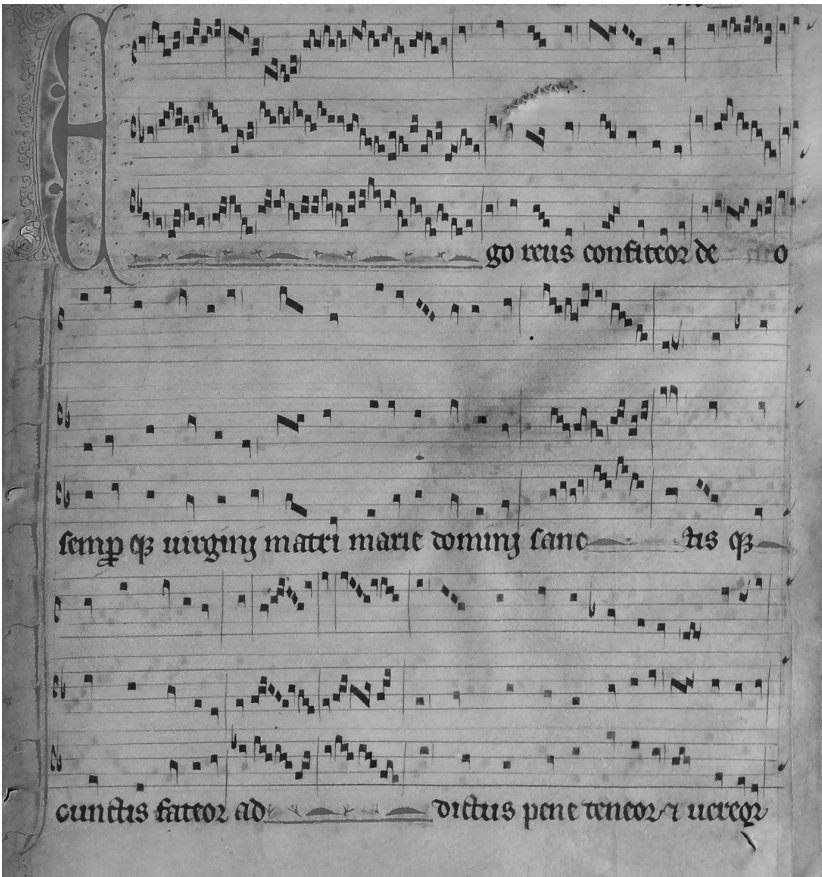 Ego reus confiteor deo
semp qꝫ uirginj matri marie dominj sanctis qꝫ
cunctis fateor ad dictus pene teneor ⁊ uereor